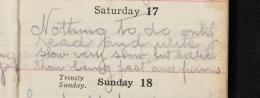 Saturday 17
Nothing to do only
read and write &
slow very slow but better
than being foot and
Trinity
Sunday. Sunday 18